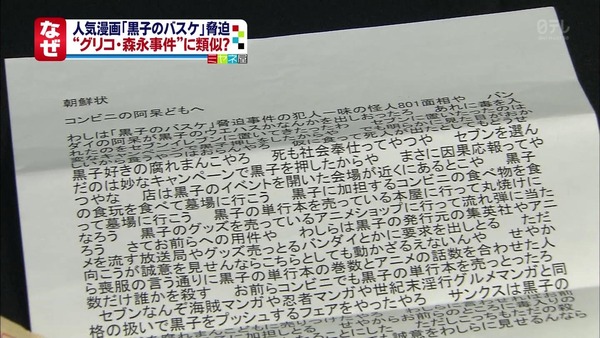 なぜ
人気漫画「黒子のバスケ」脅迫
“グリコ・森永事件”に類似?
ミヤネ屋
日テレ
朝鮮状
コンビニの阿呆どもへ
わしは「黒子のバスケ」脅迫事件の犯人一味の怪人801面相や バン
ダイの阿呆が黒子のウエハスかなんかを出しおったろ あれに毒を入
黒子好きの腐れまんこやろ 死も社会奉仕ってやつや セブンを選ん
だのは妙なキャンペーンで黒子を押したからや まさに因果応報ってや
つやな 店は黒子のイベントを開いた会場が近くにあるとこや 黒子
の食玩を食べて墓場に行こう 黒子に加担するコンビニの食べ物を食
って墓場に行こう 黒子の単行本を売っている本屋に行って丸焼けに
なろう 黒子のグッズを売っているアニメショップに行って流れ弾に当た
ろう さてお前らへの用件や わしらは黒子の発行元の集英社やアニ
メを流す放送局やグッズ売っとるバンダイとかに要求を出しとる ただ
向こうが誠意を見せんならこちらとしても動かざるえないんや せやか
ら喪服の言う通りに黒子の単行本の巻数とアニメの話数を合わせた人
数だけ誰かを殺す お前らコンビニでも黒子の単行本を売っとったろ
セブンなぞ海賊マンガや忍者マンガや世紀末淫行グルメマンガと同
格の扱いで黒子をプッシュするフェアをやったやろ サンクスは黒子の